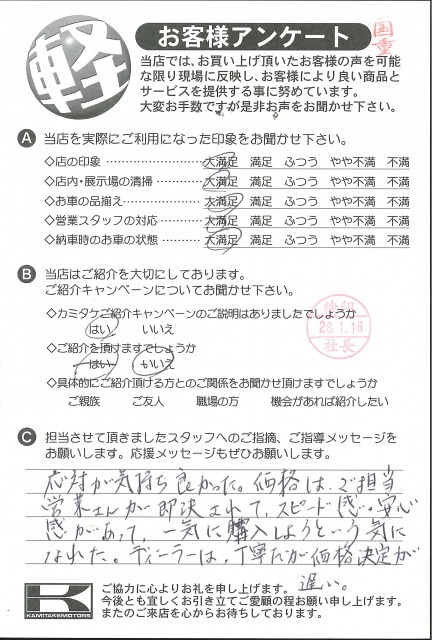 軽
お客様アンケート
国重
当店では、お買い上げ頂いたお客様の声を可能
な限り現場に反映し、お客様により良い商品と
サービスを提供する事に努めています。
大変お手数ですが是非お声をお聞かせ下さい。
A 当店を実際にご利用になった印象をお聞かせ下さい。
◇店の印象 大満足 満足 ふつう やや不満 不満
◇店内・展示場の清掃 大満足 満足 ふつう やや不満 不満
◇お車の品揃え 大満足 満足 ふつう やや不満 不満
◇営業スタッフの対応 大満足 満足 ふつう やや不満 不満
◇納車時のお車の状態 大満足 満足 ふつう やや不満 不満
B 当店はご紹介を大切にしております。
ご紹介キャンペーンについてお聞かせ下さい。
◇カミタケご紹介キャンペーンのご説明はありましたでしょうか
はい いいえ
検印
28.1.16
社長
◇ご紹介を頂けますでしょうか
はい いいえ
◇具体的にご紹介頂ける方とのご関係をお聞かせ頂けますでしょうか
ご親族 ご友人 職場の方 機会があれば紹介したい
C 担当させて頂きましたスタッフへのご指摘、ご指導メッセージを
お願いします。応援メッセージもぜひお願いします。
応対が気持ち良かった。価格は、ご担当
営業さんが即決されて、スピード感・安心
感があって、一気に購入しようという気に
なれた。ディーラーは、丁寧だが価格決定が
遅い。
K
KAMITAKEMOTORS
ご協力に心よりお礼を申し上げます。
今後とも宜しくお引き立てご愛顧の程お願い申し上げます。
またのご来店を心からお待ちしております。